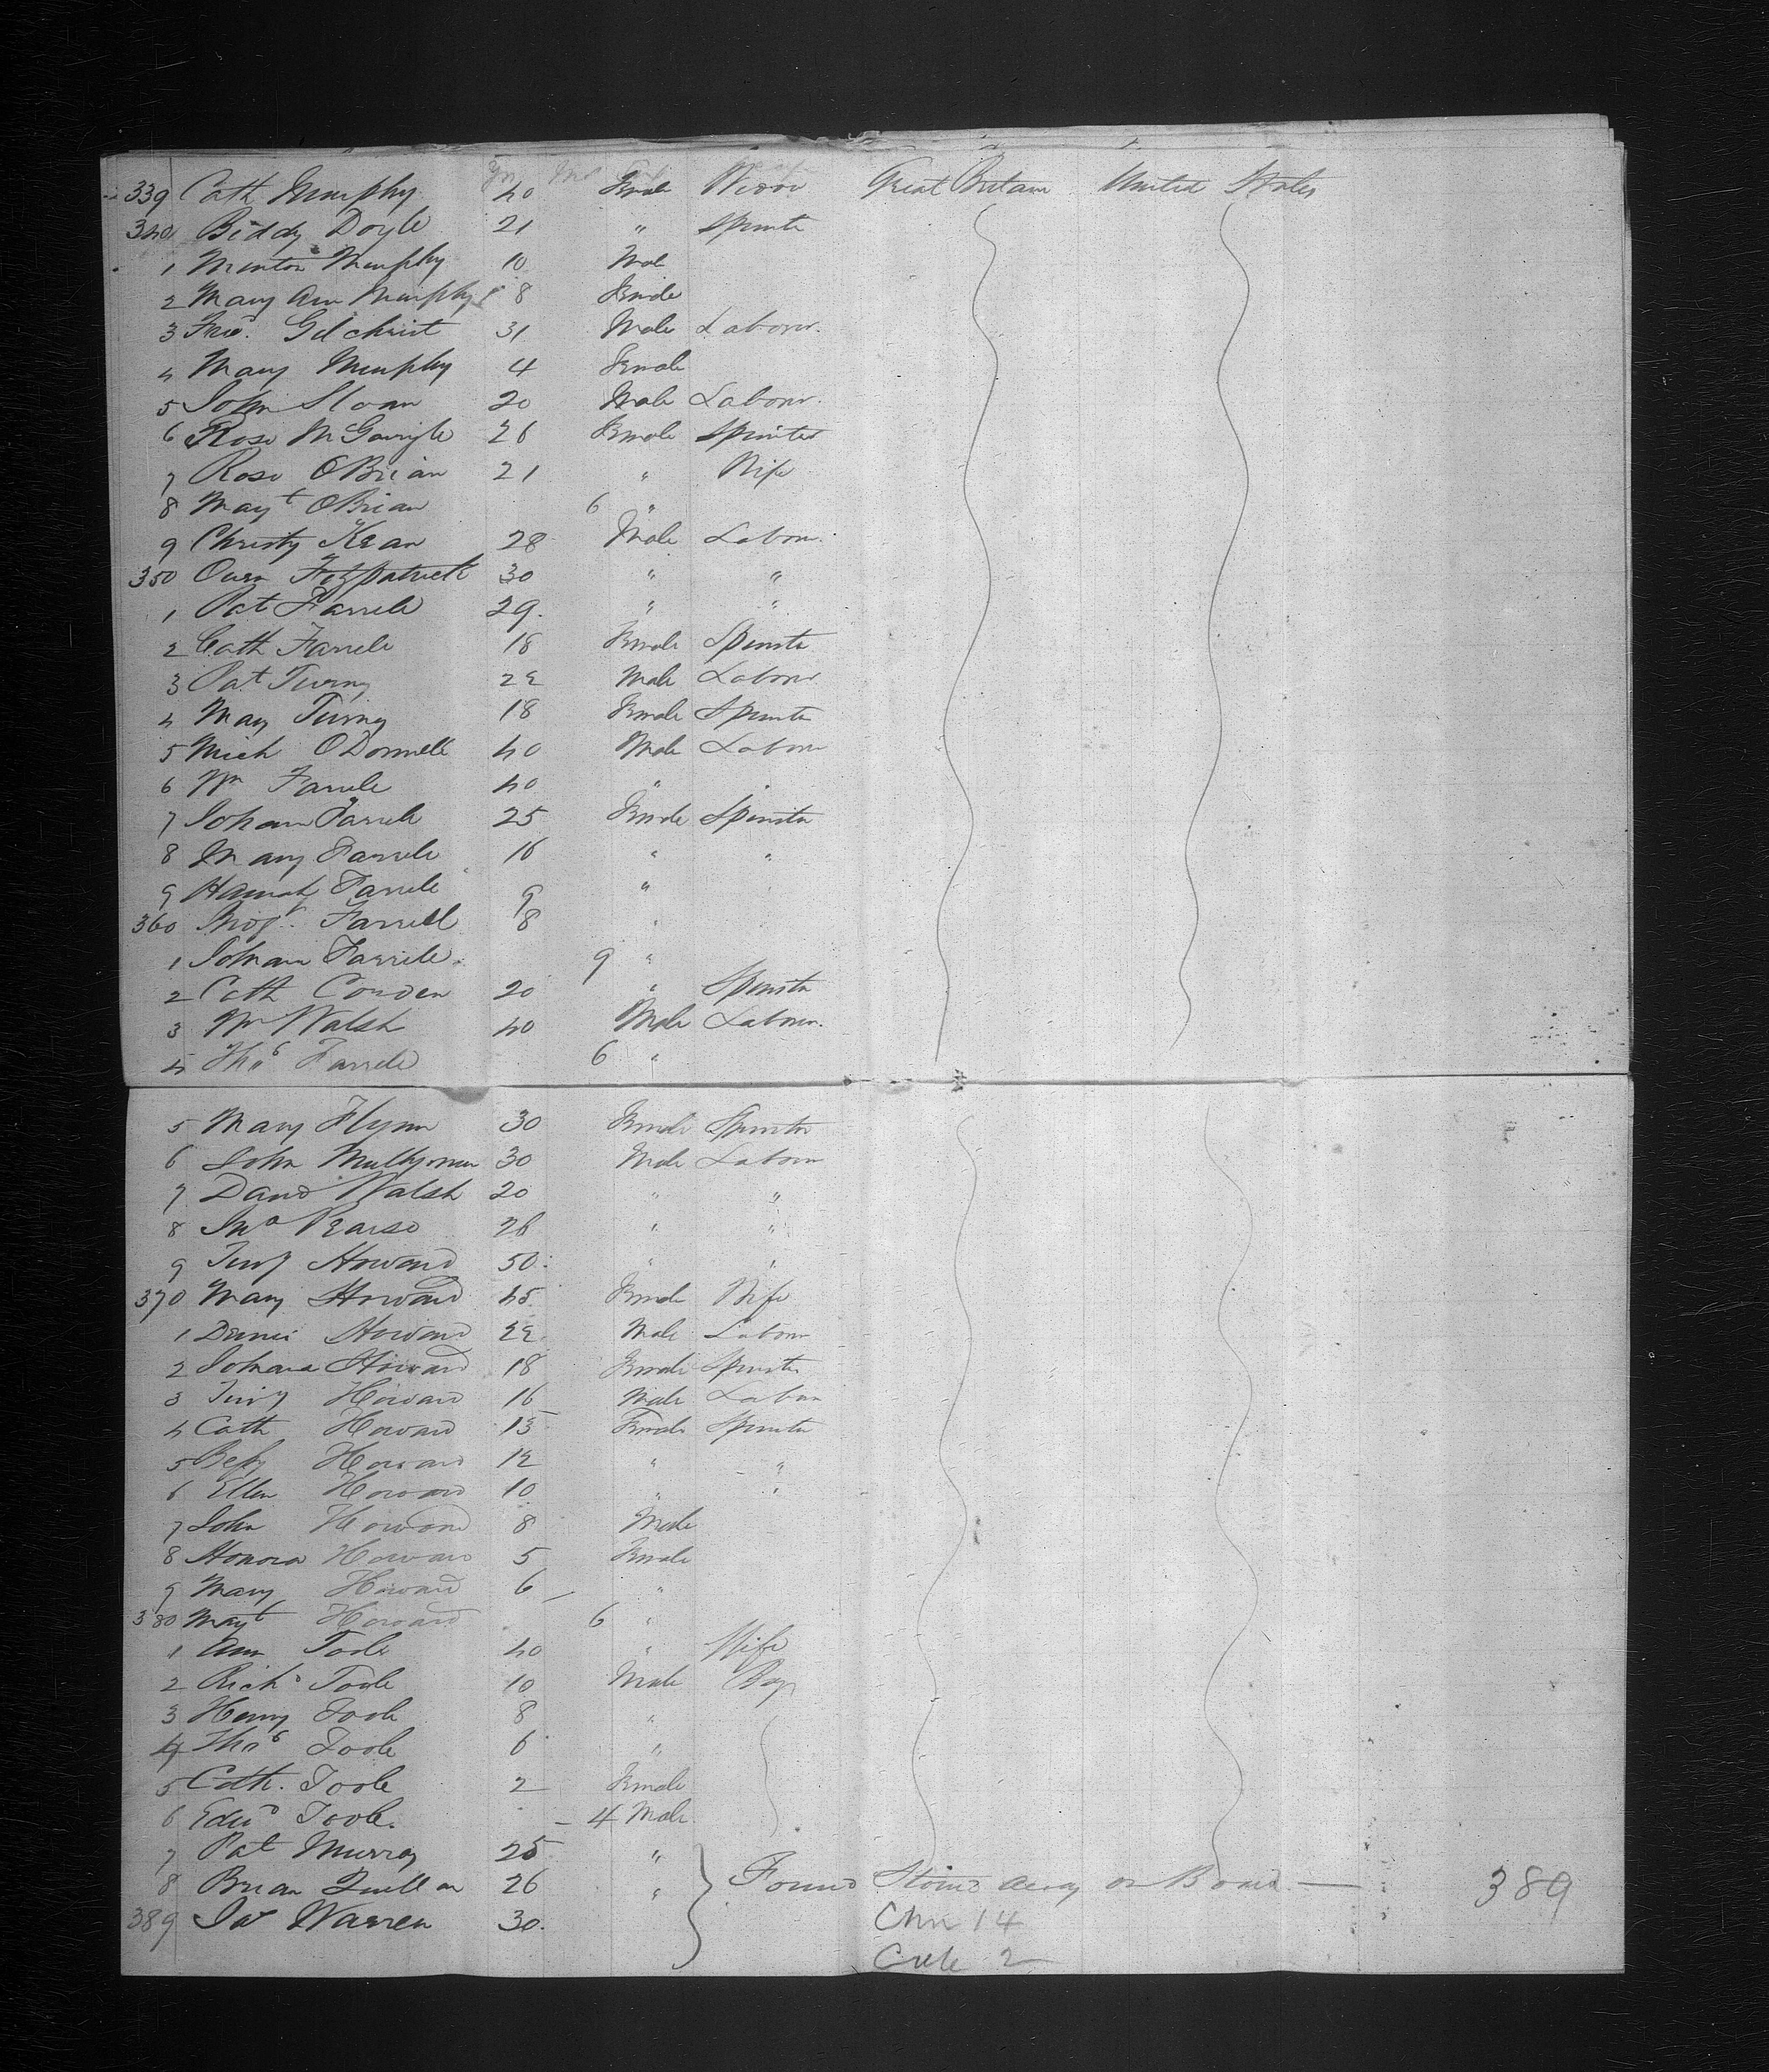 Yrs Mos
339 Cath Murphy 40 Female Widow Great Britain United States
340 Biddy Doyle 21 " Spinster
1 Murphy 10 Male
2 Mary Ann Murphy 8 Female
3 Gilchrist 31 Male Labour.
4 Mary Murphy 4 Female
5 John Sloan 20 Male Labour.
6 Rose McGarrigle 26 Female Spinster
7 Rose OBrian 21 " Wife
8 Mayt OBrian 6 "
9 Christy Kean 28 Male Labour.
350 Owen Fitzpatrick 30 " "
1 Pat Farrele 29. " "
2 Cath Farrele 18 Female Spinster
3 Pat 22 Male Labour
4 Mary 18 Female Spinster
5 Mich ODonnell 40 Male Labour
6 Wm Farrele 40 " "
7 Johan Farrele 25 Female Spinster
8 Mary Farrele 16 " "
9 Hannah Farrele 9 "
360 Farrell 8 "
1 Johan Farrele 9 "
2 Cath Conden 20 " Spinster
3 Wm Walsh 40 Male Labour.
4 Thos Farrele 6 "
5 Mary Flynn 30 Female Spinster
6 John 30 Male Labour
7 David Walsh 20 " "
8 Jno Pearse 26 " "
9 Howard 50. " "
370 Mary Howard 45 Female Wife
1 Howard 22 Male Labour
2 Johana Howard 18 Female Spinster
3 Howard 16 Male Labour
4 Cath Howard 15 Female Spinster
5 Howard 12 " "
6 Ellen Howard 10 " "
7 John Howard 8 Male
8 Honora Howard 5 Female
9 Mary Howard 6 "
380 Mayt Howard 6 "
1 Ann Toole 40 " Wife
2 Richd Toole 10 Male Boy
3 Henry Toole 8 "
4 Thos Toole 6 "
5 Cath. Toole 2 Female
6 Edwd Toole. 4 Male
7 Pat Murray 25 "
8 Brian 26 " Found Stowd away on Board — 389
389 Warren 30.
Chn 14
2